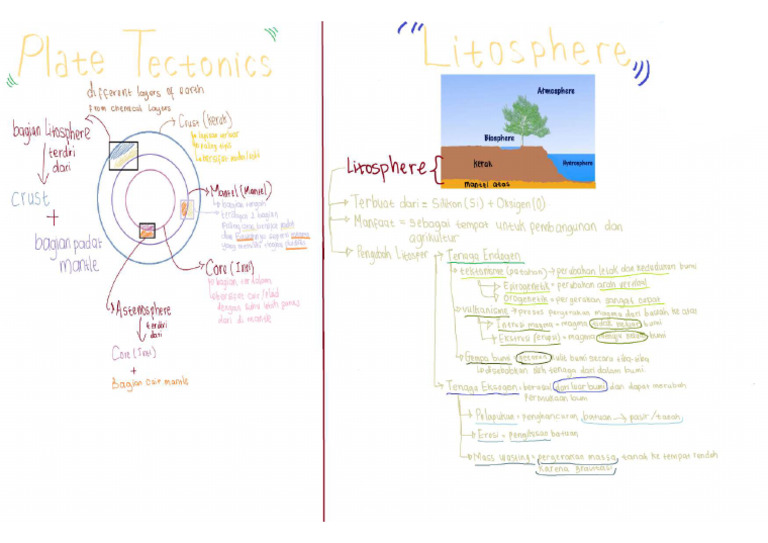 Plate Tectonics
different layers of earth
from chemical layers
bagian Litosphere
terdiri
dari
crust
+
bagian padat
mantle
Crust (Kerak)
Mantel (Mantel)
Core (Inti)
bagian terdalam
Astenosphere
terdiri
dari
Core (Inti)
+
Bagian cair mantle
"Litosphere"
Atmosphere
Biosphere
Kerak
Hydrosphere
Mantel atas
Litosphere
Terbuat dari = Silikon (Si) + Oksigen (O)
Manfaat = sebagai tempat untuk pembangunan dan
agrikultur
Pengubah Litosfer
Tenaga Endogen
tektonisme (patahan) → perubahan letak dan kedudukan bumi
Epirogenetik = perubahan arah vertikal
Orogenetik = pergerakan sangat cepat
vulkanisme → proses pergerakan magma dari bawah ke atas
Intrusi magma = magma tidak keluar bumi
Ekstrusi (erupsi) = magma bumi
Gempa bumi = getaran kulit bumi secara tiba-tiba
disebabkan oleh tenaga dari dalam bumi.
Tenaga Eksogen = berasal dari luar bumi dan dapat merubah
Permukaan bumi
Pelapukan = penghancuran batuan → pasir/tanah
Erosi = pengikisan batuan
Mass wasting = pergerakan massa tanah ke tempat rendah
karena gravitasi